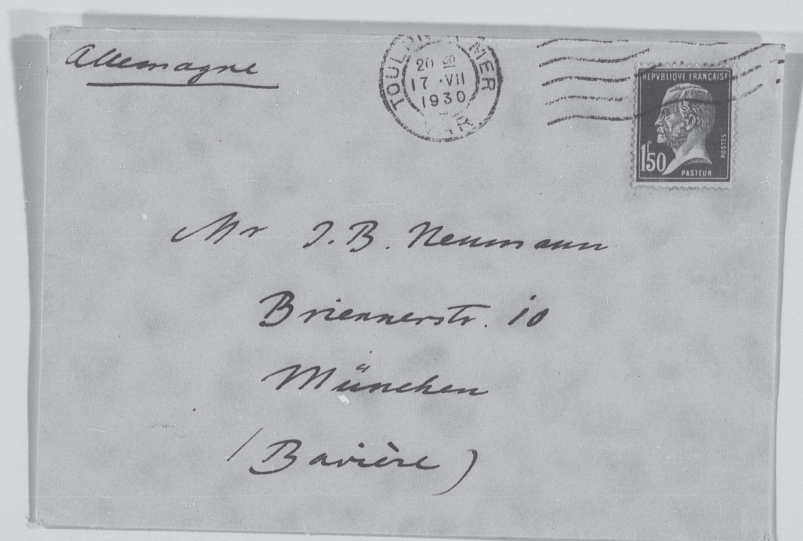 Allemagne
TOULON S MER
20 30
17 · VII
1930
VAR
REPVBLIQVE FRANÇAISE
1f50
POSTES
PASTEUR
Mr J. B. Neumann
Briennerstr. 10
München
(Bavière)